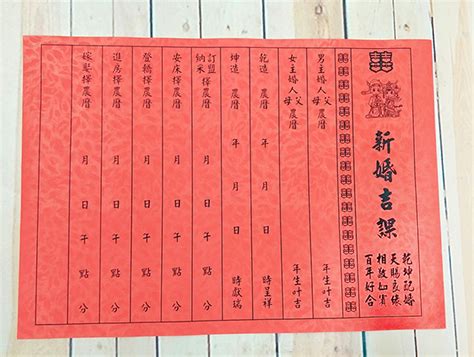 囍
新婚吉課
乾坤配婚
天賜良緣
相敬如賓
百年好合
男主婚人父母農曆 年生叶吉
女主婚人父母農曆 年生叶吉
乾造農曆 年 月 日 時呈祥
坤造農曆 年 月 日 時獻瑞
訂盟納采擇農曆 月 日 午 點 分
安床擇農曆 月 日 午 點 分
登轎擇農曆 月 日 午 點 分
進房擇農曆 月 日 午 點 分
嫁娶擇農曆 月 日 午 點 分